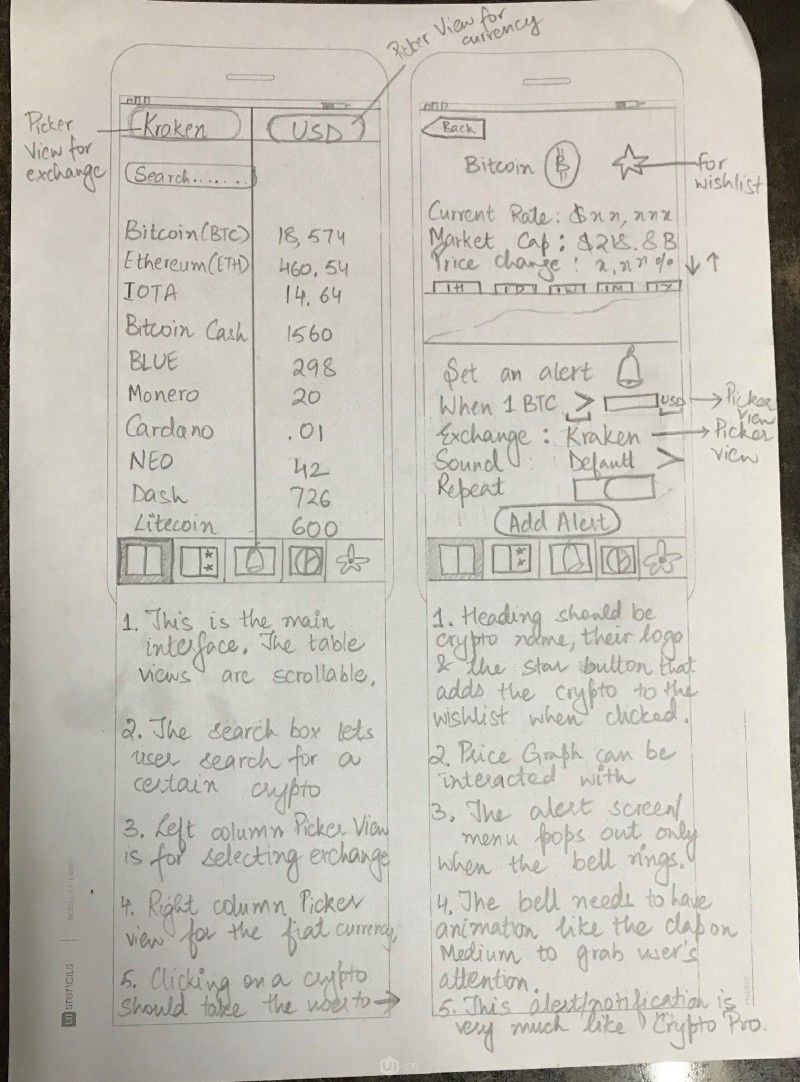 Picker View for
currency
Picker
View for
exchange
Kraken
USD
Search.......
Bitcoin(BTC) 18,574
Ethereum(ETH) 460.54
IOTA 14.64
Bitcoin Cash 1560
BLUE 298
Monero 20
Cardano .01
NEO 42
Dash 726
Litecoin 600
1. This is the main
interface. The table
views are scrollable.
2. The search box lets
user search for a
certain crypto
3. Left column Picker View
is for selecting exchange
4. Right column Picker
view for the fiat currency.
5. Clicking on a crypto
should take the user to →
Back
Bitcoin B
for
wishlist
Current Rate: $xx,xxx
Market Cap: $218.8B
Price change: x.xx% ↓↑
1H 1D 1W 1M 1Y
Set an alert
When 1 BTC > USD
Picker
View
Exchange: Kraken
Picker
view
Sound Default >
Repeat
Add Alert
1. Heading should be
crypto name, their logo
& the star button that
adds the crypto to the
wishlist when clicked.
2. Price Graph can be
interacted with
3. The alert screen/
menu pops out only
when the bell rings.
4. The bell needs to have
animation like the clap on
Medium to grab user's
attention.
5. This alert/notification is
very much like Crypto Pro.
UI STENCILS
UI.cn